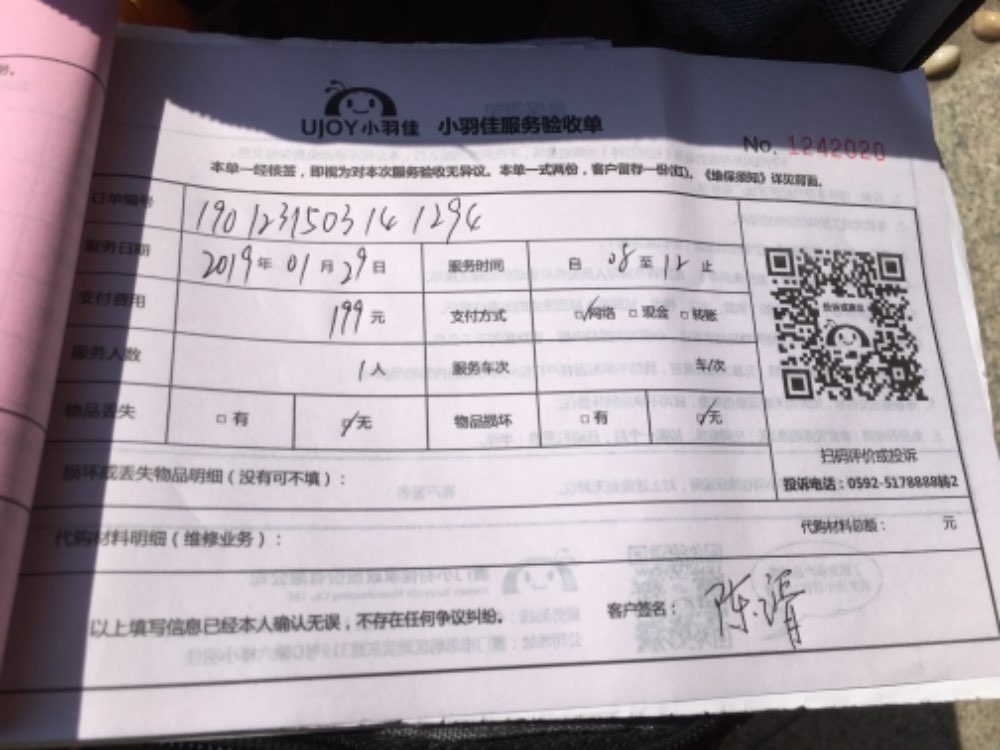 UJOY小羽佳 小羽佳服务验收单
No. 1242020
本单一经核签，即视为对本次服务验收无异议。本单一式两份，客户留存一份(红)。《维保须知》详见背面。
订单编号 1901231503141294
服务日期 2019年01月29日 服务时间 自08至12止
支付费用 199元 支付方式 网络 现金 转账
服务人数 1人 服务车次 车/次
物品丢失 有 无 物品损坏 有 无
扫码评价或投诉
投诉电话：0592-5178888转2
损坏或丢失物品明细（没有可不填）：
代购材料明细（维修业务）： 代购材料总额： 元
以上填写信息已经本人确认无误，不存在任何争议纠纷。 客户签名：陈